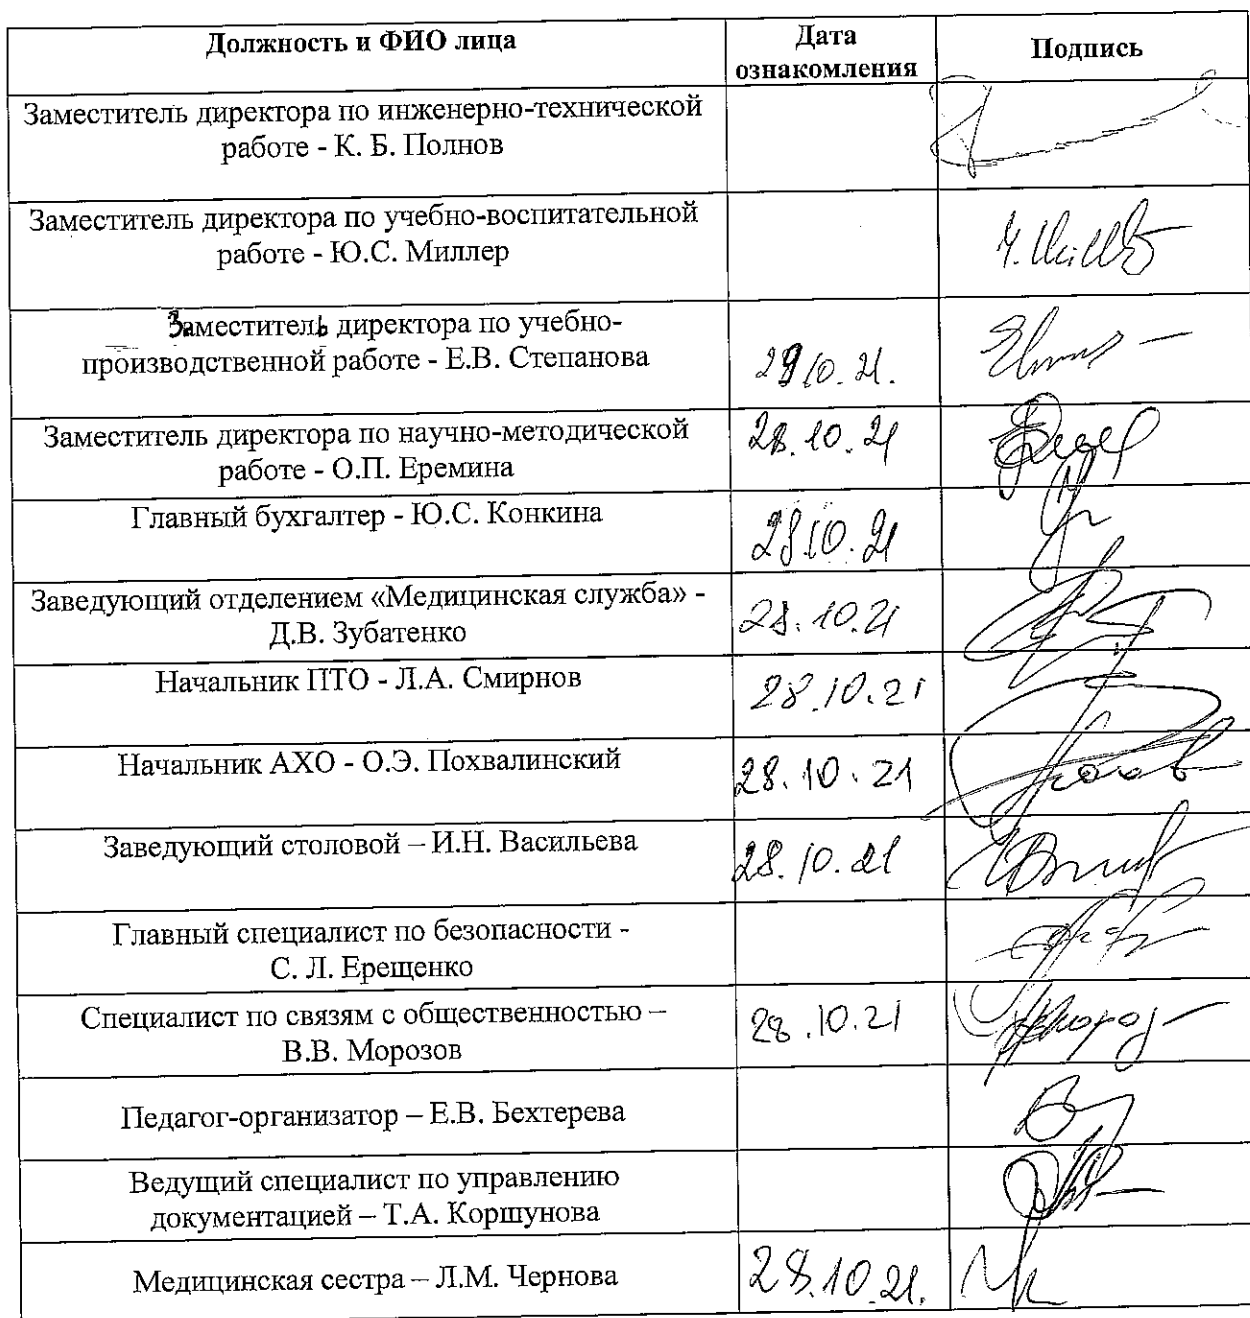 Должность и ФИО лица
Дата
ознакомления
Подпись
Заместитель директора по инженерно-технической
работе - К. Б. Полнов
Заместитель директора по учебно-воспитательной
работе - Ю.С. Миллер
Заместитель директора по учебно-
производственной работе - Е.В. Степанова
29 10. 21.
Заместитель директора по научно-методической
работе - О.П. Еремина
28.10.21
Главный бухгалтер - Ю.С. Конкина
28 10. 21
Заведующий отделением «Медицинская служба» -
Д.В. Зубатенко
28.10.21
Начальник ПТО - Л.А. Смирнов
28.10.21
Начальник АХО - О.Э. Похвалинский
28.10.21
Заведующий столовой – И.Н. Васильева
28.10.21
Главный специалист по безопасности -
С. Л. Ерещенко
Специалист по связям с общественностью –
В.В. Морозов
28.10.21
Педагог-организатор – Е.В. Бехтерева
Ведущий специалист по управлению
документацией – Т.А. Коршунова
Медицинская сестра – Л.М. Чернова
28.10.21.